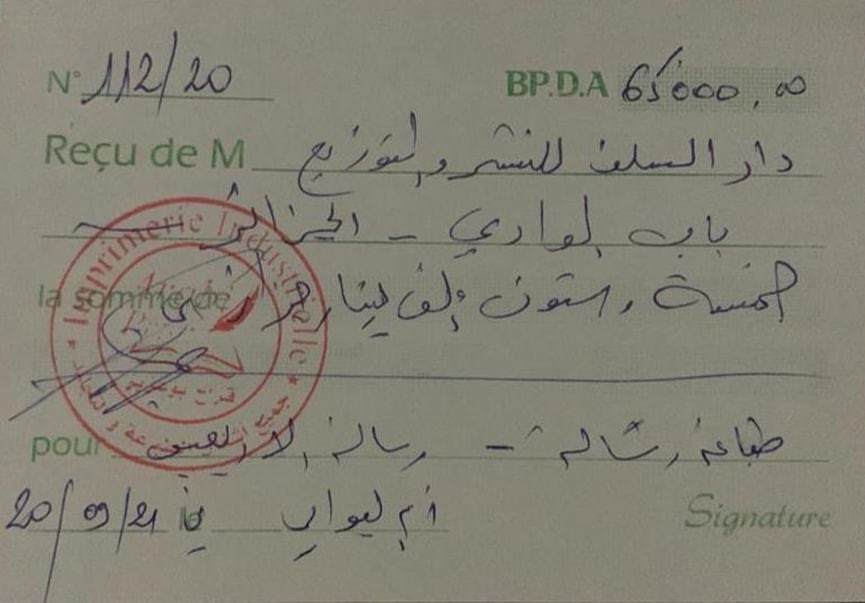 N° 112/20 BP.D.A 65'000,00
Reçu de M دار السلف للنشر والتوزيع
باب الوادي - الجزائر
la somme de خمسة وستون ألف دينار جزائري
pour طباعة رسالة - رسالة
أم البواقي في 20/09/21
Signature
Imprimerie Industrielle